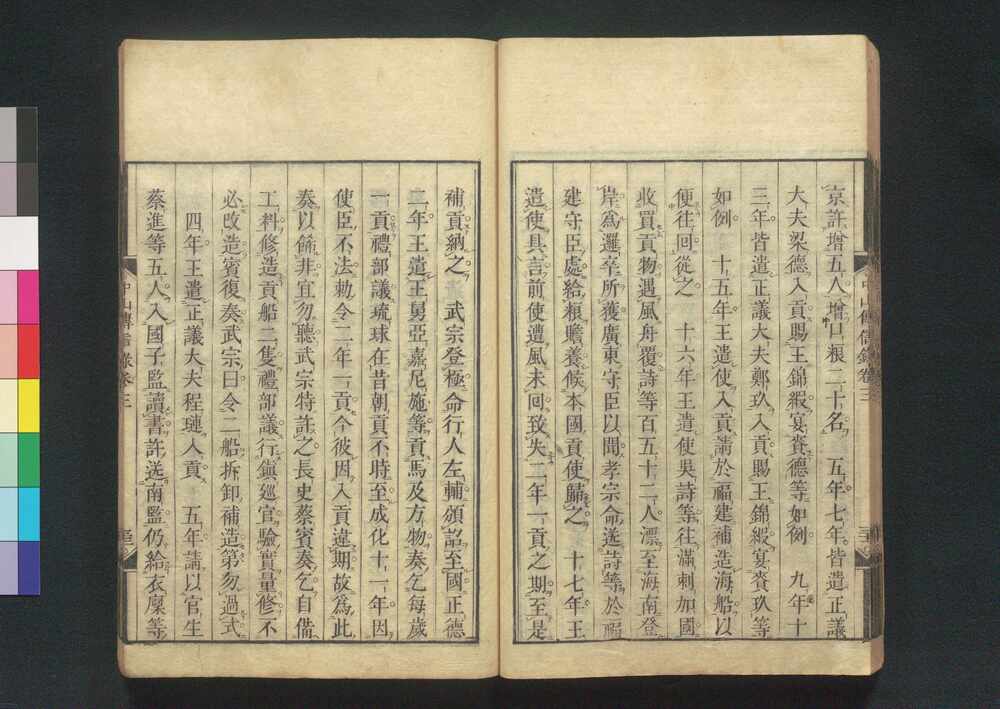 京許增五人增口糧二十名　五年七年皆遣正議
大夫梁德入貢賜王錦緞宴賚德等如例　九年十
三年皆遣正議大夫鄭玖入貢賜王錦緞宴賚玖等
如例　十五年王遣使入貢請於福建補造海船以
便往回從之　十六年王遣使吳詩等往滿剌加國
收買貢物遇風舟覆詩等百五十二人漂至海南登
岸為邏卒所獲廣東守臣以聞孝宗命送詩等於福
建守臣處給糧贍養候本國貢使歸之　十七年王
遣使具言前使遭風未回致失二年一貢之期至是
中山傳信錄卷三
補貢納之　武宗登極命行人左輔頒詔至國正德
二年王遣王舅亞嘉尼施等貢馬及方物奏乞每歲
一貢禮部議琉球在昔朝貢不時至成化十一年因
使臣不法勅令二年一貢今彼因入貢違期故為此
奏以飾非宜勿聽武宗特許之長史蔡賓奏乞自備
工料修造貢船二隻禮部議行鎮巡官驗實量修不
必改造賓復奏武宗曰令二船拆卸補造第勿過式
四年王遣正議大夫程璉入貢　五年請以官生
蔡進等五人入國子監讀書許送南監仍給衣廩等
中山傳信錄卷三